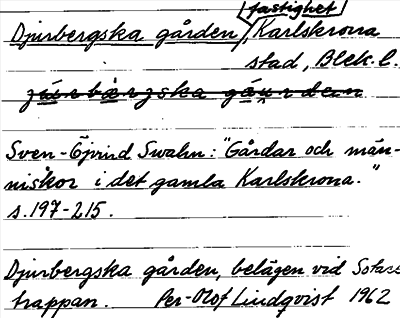 fastighet
Djurbergska gården, Karlskrona
stad, Blek. l.
Sven-Öjvind Swahn: "Gårdar och män-
niskor i det gamla Karlskrona."
s. 197-215.
Djurbergska gården, belägen vid Sotare
trappan. Per-Olof Lindqvist 1962